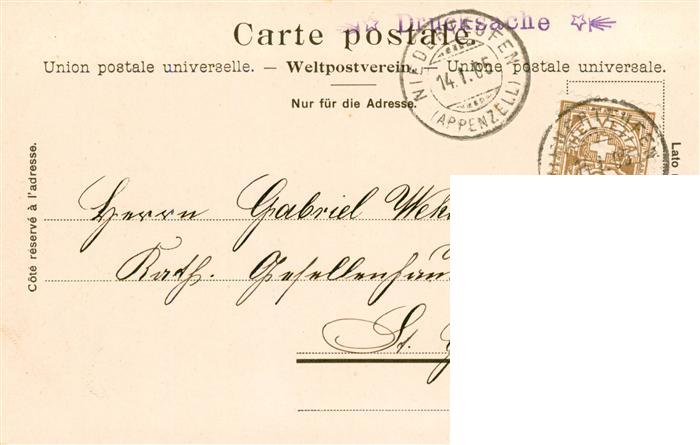 Drucksache
Carte postale.
Union postale universelle. — Weltpostverein — Unione postale universale.
NIEDERTEUFEN
14.I.05
(APPENZELL)
Nur für die Adresse.
HELVETIA
Côté réservé à l'adresse.
Lato
Herrn Gabriel
Kath.
St.